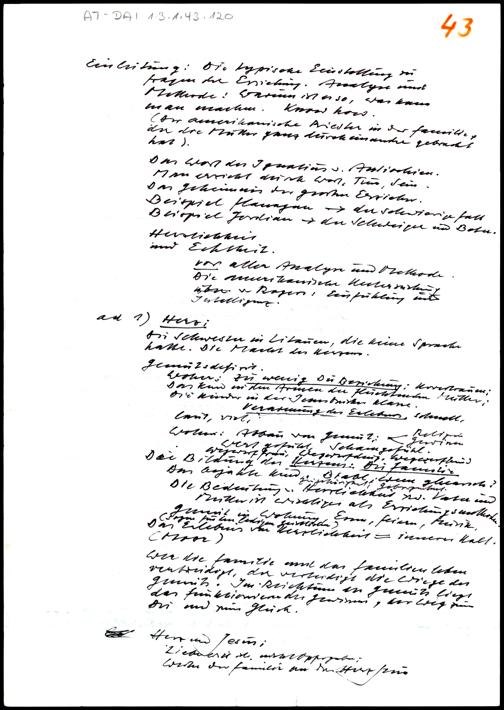 AT-DAI 1.3.1.43.120
43
Einleitung: Die typische Einstellung zu
Fragen der Erziehung. Analyse und
Methode: Warum ist es so, was kann
man machen. Know how.
(Der amerikanische Priester in der Familie,
der die Mutter ganz durcheinander gebracht
hat).
Das Wort des Ignatius v. Antiochien.
Man erzieht durch Wort, Tun, Sein.
Das Geheimnis der großen Erzieher.
Beispiel Flanagan → der schwierige Fall
Beispiel Jordan → der Schweiger und
Herzlichkeit
und Echtheit.
vor aller Analyse und Methode.
Die amerikanische Untersuchung
über v Rogers: Einfühlung
Intelligenz.
ad 1) Herz:
Die Schwester in Litauen, die keine Sprache
hatte. Die Macht des Herzens.
Gemütsdefizit.
Woher: Zu wenig Du Beziehung:
Das Kind in den Armen der flüchtenden Mutter;
Die Kinder in der Innsbrucker Klasse.
Verarmung des Erlebens, schnell,
laut, viel;
Wohin: Abbau von Gemüt:
Wertgefühl, Schamgefühl,
Die Bildung des Herzens: Die Familie
Das bejahte Kind.
Die Bedeutung v. Herzlichkeit zw. Vater und
Mutter ist wichtiger als Erziehungsmethode.
Gemüt in Wohnung, Essen, feiern, Musik.
Das Erleben von Herzlichkeit = inneres Kalt.
Wer die Familie und das Familienleben
verteidigt, der verteidigt die Wiege des
Gemüts. Im Reichtum an Gemüt liegt
das Funktionieren des Gewissens, der Weg zum
Du und zum Glück.
Herz und Jesus:
Weihe der Familie an das Herz Jesu